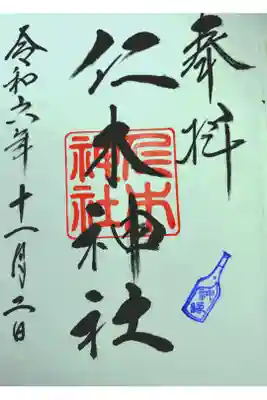 奉拝
仁木神社
仁木神社
令和六年十一月二日